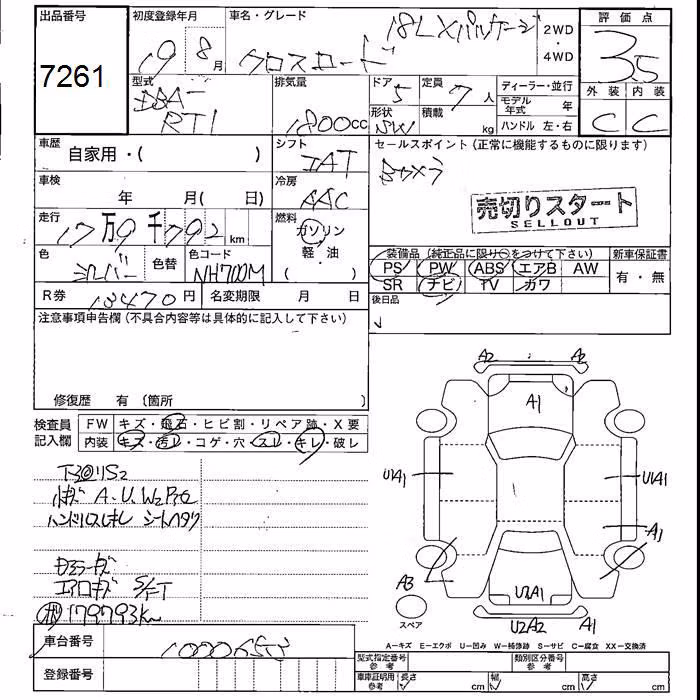 出品番号
7261
初度登録年月
19 8月
車名・グレード
クロスロード 18LXパッケージ
2WD
・
4WD
評価点
3.5
外装 内装
C C
型式
DBA-
RT1
排気量
1800cc
ドア 5
形状 SW
定員 7人
積載 kg
ディーラー・並行
モデル年式 年
ハンドル 左・右
車歴
自家用・( )
シフト
IAT
セールスポイント(正常に機能するものに限ります)
車検
年 月( 日)
冷房
AAC
売切りスタート
SELLOUT
走行
17万9千792km
燃料
ガソリン
軽・油
( )
色
シルバー
色替
色コード
NH700M
装備品(純正品に限り○をつけて下さい)
新車保証書
PS PW ABS エアB AW
SR ナビ TV カワ
有・無
R券 13470円
名変期限 月 日
後日品
注意事項申告欄(不具合内容等は具体的に記入して下さい)
修復歴 有(箇所 )
検査員
記入欄
FW キズ・飛石・ヒビ割・リペア跡・X要
内装 キズ・汚レ・コゲ・穴・スレ・キレ・破レ
A2 A2
A1
U1A1 U1A1
A1
A3
U2A1
スペア
U2A2 A1
A.U.W2
179793km
A=キズ E=エクボ U=凹み W=補修跡 S=サビ C=腐食 XX=交換済
車台番号
1000655
登録番号
型式指定番号
参考
類別区分番号
参考
車庫証明用
参考
長さ cm
幅 cm
高さ cm